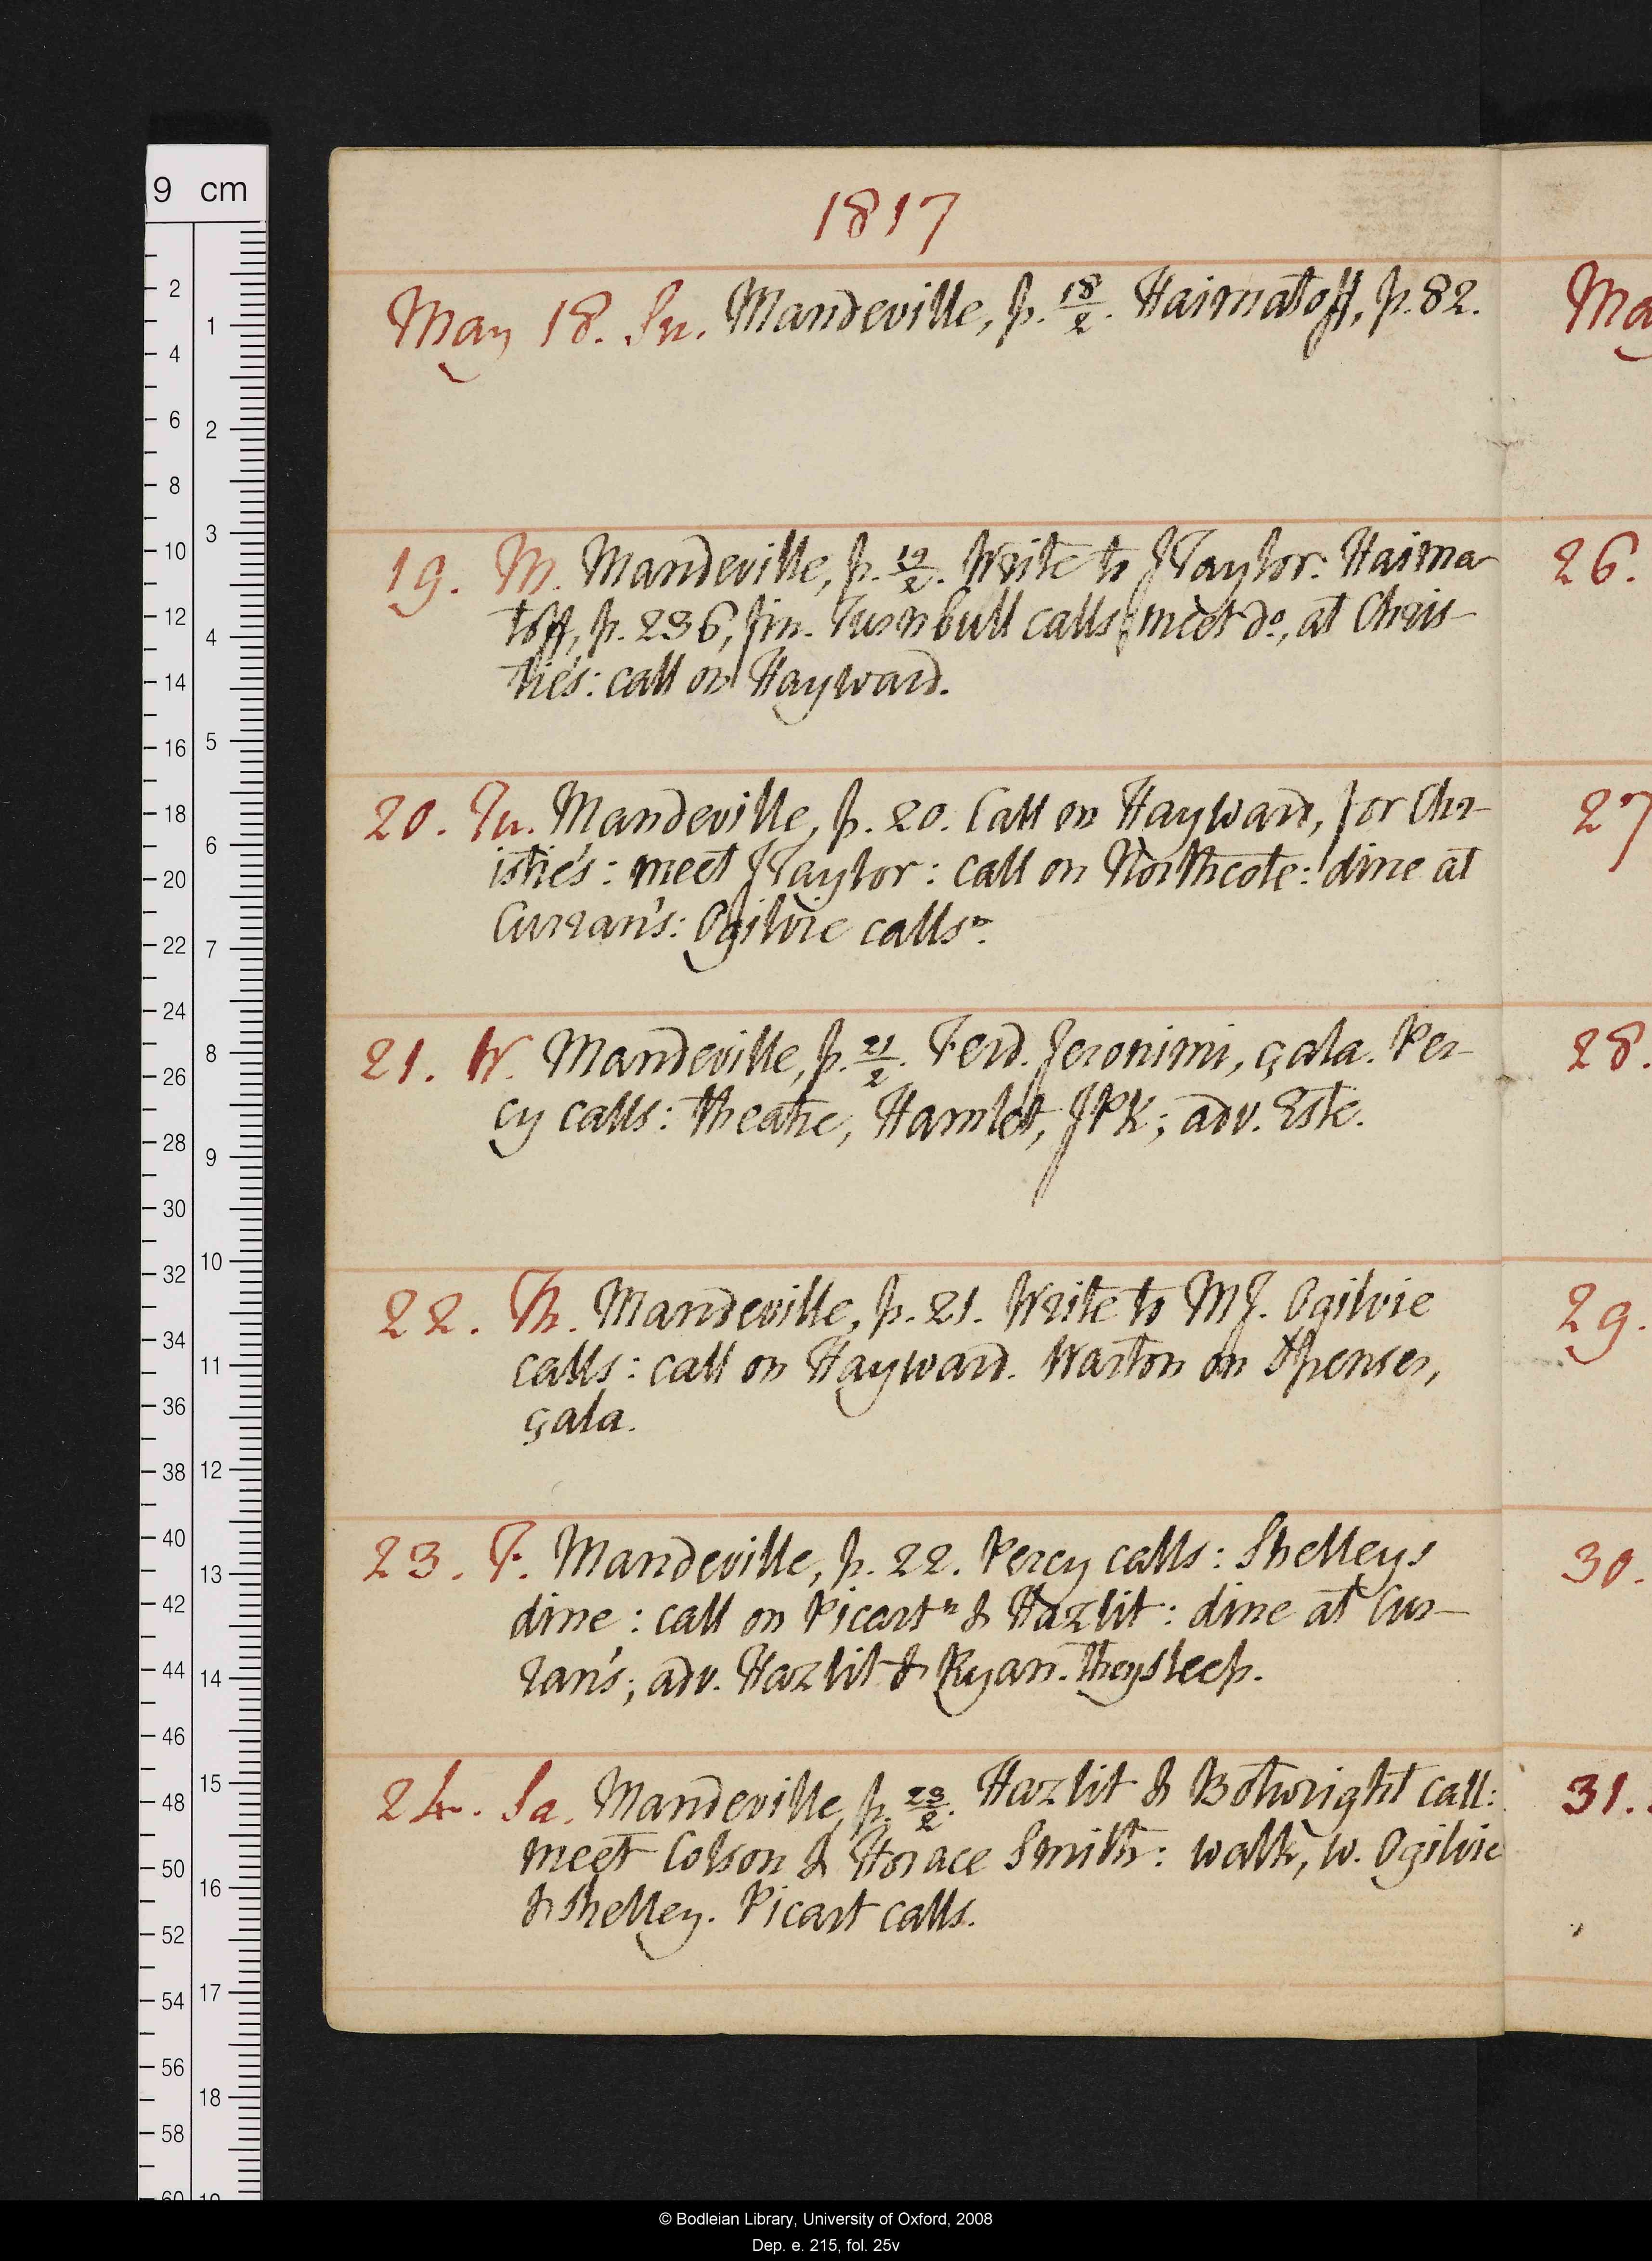 1817
May 18. Su. Mandeville, p. 18/2. Haimatoff, p. 82.
19. M. Mandeville, p. 19/2. Write to JTaylor. Haima-
toff, p. 236, fin. Turnbull calls; meet do, at Chris-
tie's: call on Hayward.
20. Tu. Mandeville, p. 20. Call on Hayward, for Chr-
istie's: meet JTaylor: call on Northcote: dine at
Curran's: Ogilvie calls
21. W. Mandeville, p. 21/2. Ferd. Jeronimi, çala. Per-
cy calls: theatre, Hamlet, JPK; adv. Este.
22. Th. Mandeville, p. 21. Write to MJ. Ogilvie
calls: call on Hayward. Warton on Spenser,
çala.
23. F. Mandeville, p. 22. Percy calls: Shelleys
dine: call on Picart n & Hazlit: dine at Cur-
ran's; adv. Hazlit & Ryan. They sleep.
24. Sa. Mandeville, p. 23/2. Hazlit & Botwright call:
meet Colson & Horace Smith: walk, w. Ogilvie
& Shelley. Picart calls.
Ma
26.
27
28.
29.
30.
31.
9 cm
2
4
6
8
10
12
14
16
18
20
22
24
26
28
30
32
34
36
38
40
42
44
46
48
50
52
54
56
58
60
1
2
3
4
5
6
7
8
9
10
11
12
13
14
15
16
17
18
19
© Bodleian Library, University of Oxford, 2008
Dep. e. 215, fol. 25v